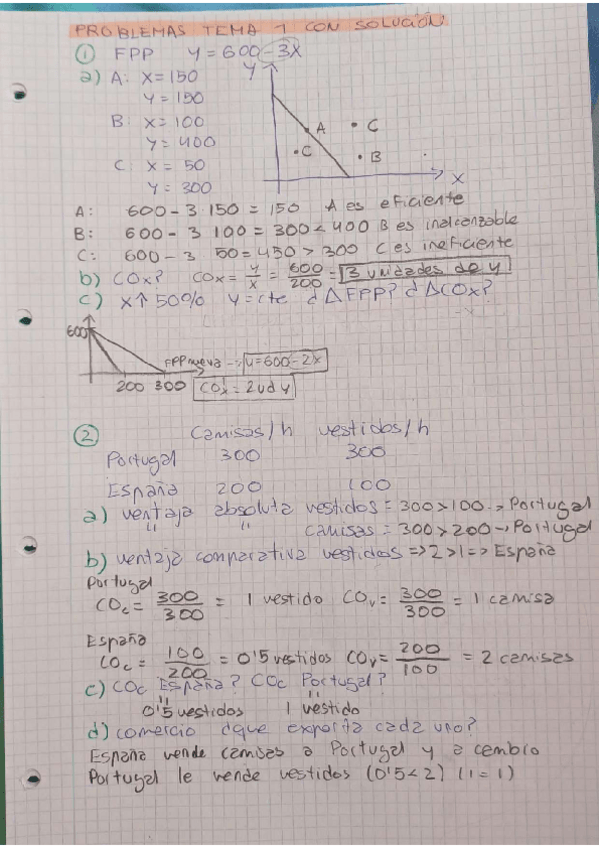 PROBLEMAS TEMA 1 CON SOLUCIÓN
① FPP Y = 600 - 3X
a) A: X = 150
Y = 150
B: X = 100
Y = 400
C: X = 50
Y = 300
Y
A
C
C
B
X
A: 600 - 3 150 = 150 A es eficiente
B: 600 - 3 100 = 300 < 400 B es inalcanzable
C: 600 - 3 50 = 450 > 300 C es ineficiente
b) COx? COx = Y/X = 600/200 = 3 unidades de y
c) X↑ 50% Y = cte d ΔFPP? d ΔCOx?
600
FPP nueva → Y = 600 - 2X
200 300 CO'x = 2 ud y
② Camisas/h vestidos/h
Portugal 300 300
España 200 100
a) ventaja absoluta vestidos = 300 > 100 → Portugal
" " camisas = 300 > 200 → Portugal
b) ventaja comparativa vestidos => 2 > 1 => España
Portugal
COc = 300/300 = 1 vestido COv = 300/300 = 1 camisa
España
COc = 100/200 = 0'5 vestidos COv = 200/100 = 2 camisas
c) COc España? COc Portugal?
" "
0'5 vestidos 1 vestido
d) comercio dque exporta cada uno?
España vende camisas a Portugal y a cambio
Portugal le vende vestidos (0'5 < 2) (1 = 1)